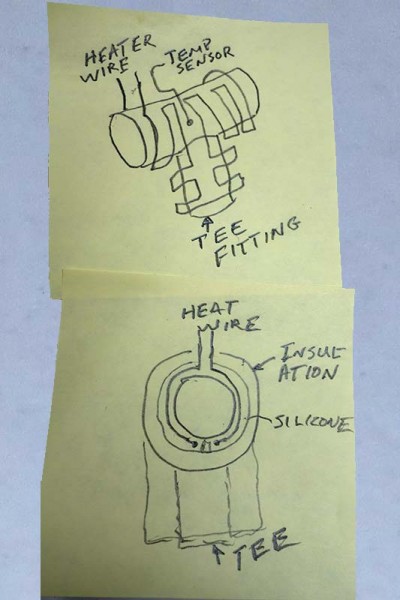 HEATER
WIRE
TEMP
SENSOR
TEE
FITTING
HEAT
WIRE
INSUL
ATION
SILICONE
TEE